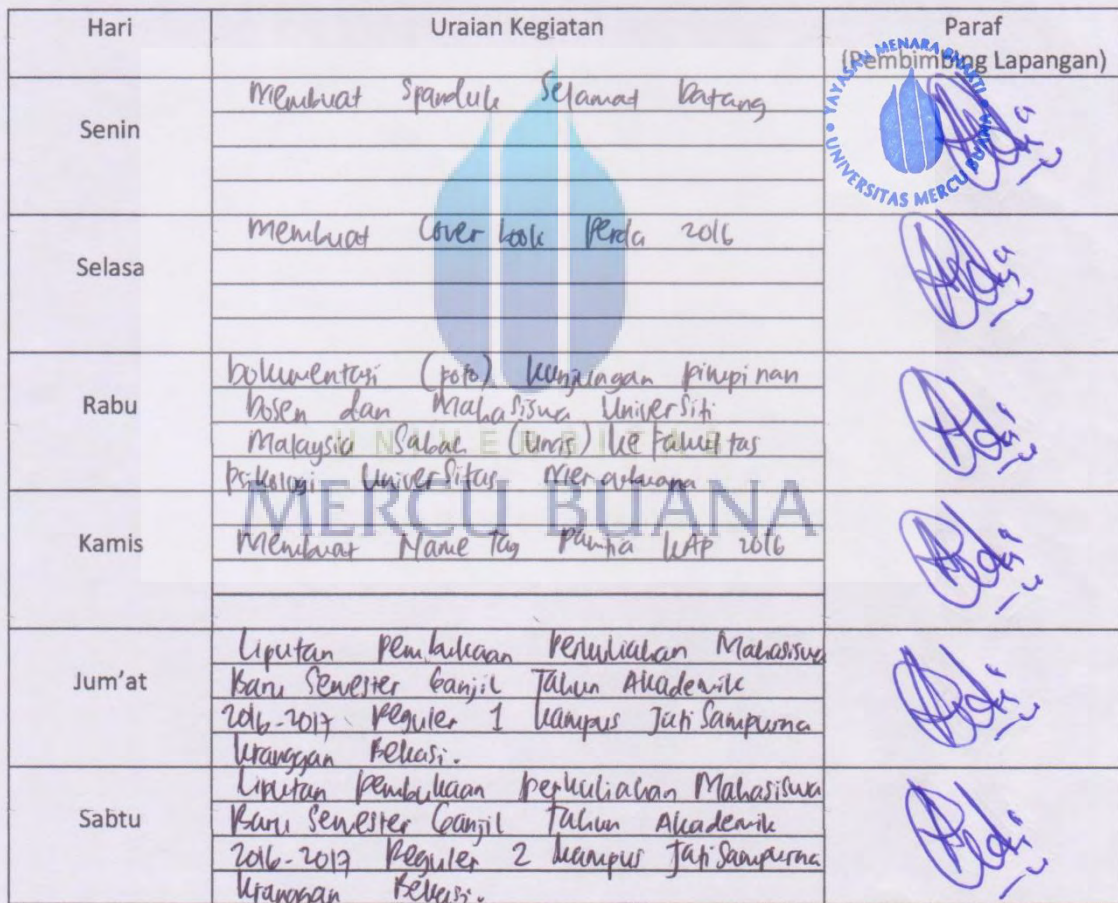 Hari Uraian Kegiatan Paraf
(Pembimbing Lapangan)
YAYASAN MENARA BHAKTI
UNIVERSITAS MERCU BUANA
Senin
Membuat Spanduk Selamat Datang
Selasa
Membuat Cover book Perda 2016
Rabu
Dokumentasi (Foto) kunjungan pimpinan
Dosen dan Mahasiswa Universiti
Malaysia Sabah (UMS) ke Fakultas
Psikologi Universitas Mercubuana
UNIVERSITAS
MERCU BUANA
Kamis
Membuat Name Tag Panitia 2016
Jum'at
Liputan Pembukaan Perkuliahan Mahasiswa
Baru Semester Ganjil Tahun Akademik
2016-2017 Reguler 1 kampus Jati Sampurna
Kranggan Bekasi.
Sabtu
Liputan pembukaan perkuliahan Mahasiswa
Baru Semester Ganjil Tahun Akademik
2016-2017 Reguler 2 kampus Jati Sampurna
Kranggan Bekasi.